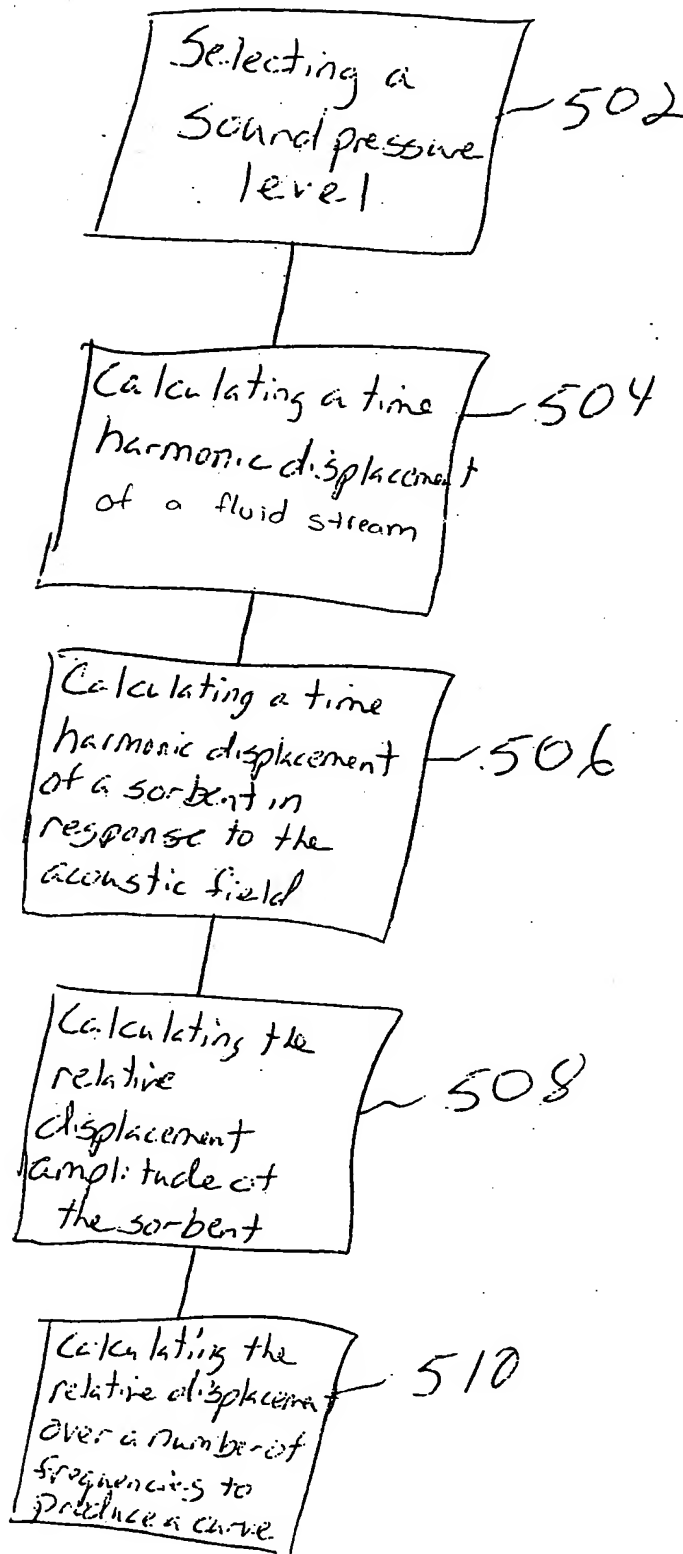 Selecting a
sound pressure
level
502
Calculating a time
harmonic displacement
of a fluid stream
504
Calculating a time
harmonic displacement
of a sorbent in
response to the
acoustic field
506
Calculating the
relative
displacement
amplitude of
the sorbent
508
Calculating the
relative displacement
over a number of
frequencies to
produce a curve
510